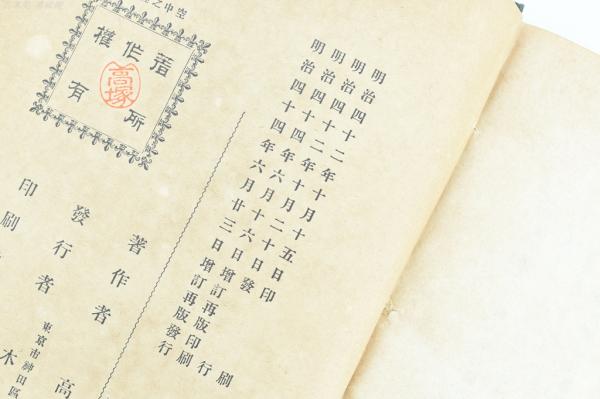 明治四十二年十月十五日印刷
明治四十二年十月二十日發行
明治四十四年六月十六日增訂再版印刷
明治四十四年六月廿三日增訂再版發行
空中之
著作權
所有
高塚
著作者 高
發行者 東京市神田區 木
印刷